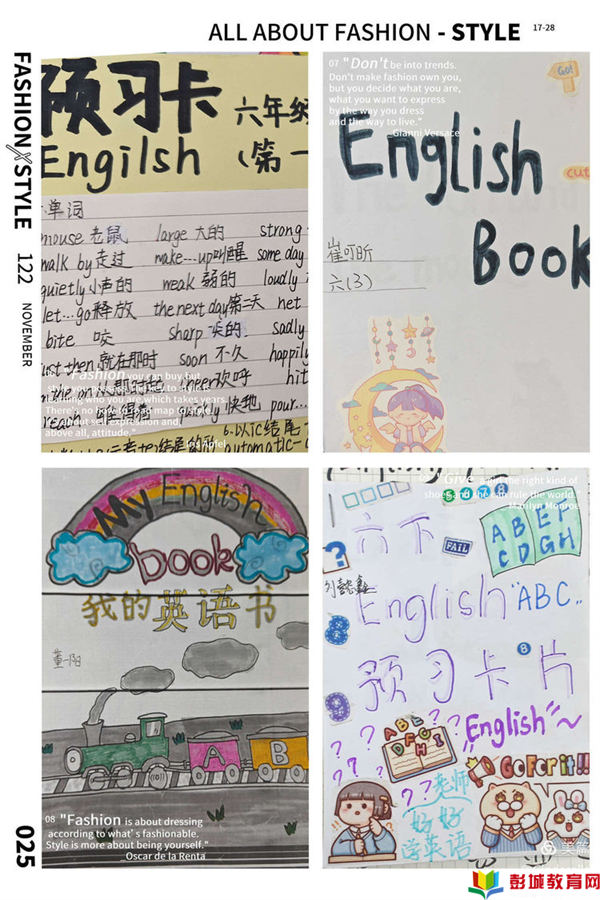 ALL ABOUT FASHION - STYLE 17-28
FASHION X STYLE 122 NOVEMBER
025
预习卡
六年级
Engilsh
(第一
单词
mouse 老鼠 large 大的 strong
walk by 走过 make...up叫醒 some day
quietly 小声的 weak 弱的 loudly
let...go释放 the next day第二天 net
bite 咬 sharp 尖的 sadly
just then 就在那时 soon 不久 happily
cheer欢呼 hit
reach quickly 快地 pour...
automatic
"Fashion you can buy, but
style you possess. The key to style is
learning who you are, which takes years.
There's no how-to road map to style.
It's about self expression and,
above all, attitude."
Iris Apfel
07 "Don't be into trends.
Don't make fashion own you,
but you decide what you are,
what you want to express
by the way you dress
and the way to live."
Gianni Versace
Go!
English
cut
Book
六(3)
My English
book
我的英语书
董一阳
A B
08 "Fashion is about dressing
according to what's fashionable.
Style is more about being yourself."
Oscar de la Renta
"Give a girl the right kind of
shoes and she can rule the world."
Marilyn Monroe
六下
FAIL
A B E F
C D G H
?
English "ABC"
8
预习卡片
8
9
English
A B C
D F G H I
? ? ? ? ? ?
Go For it!!
老师
好好
学英语
美篇
彭城教育网